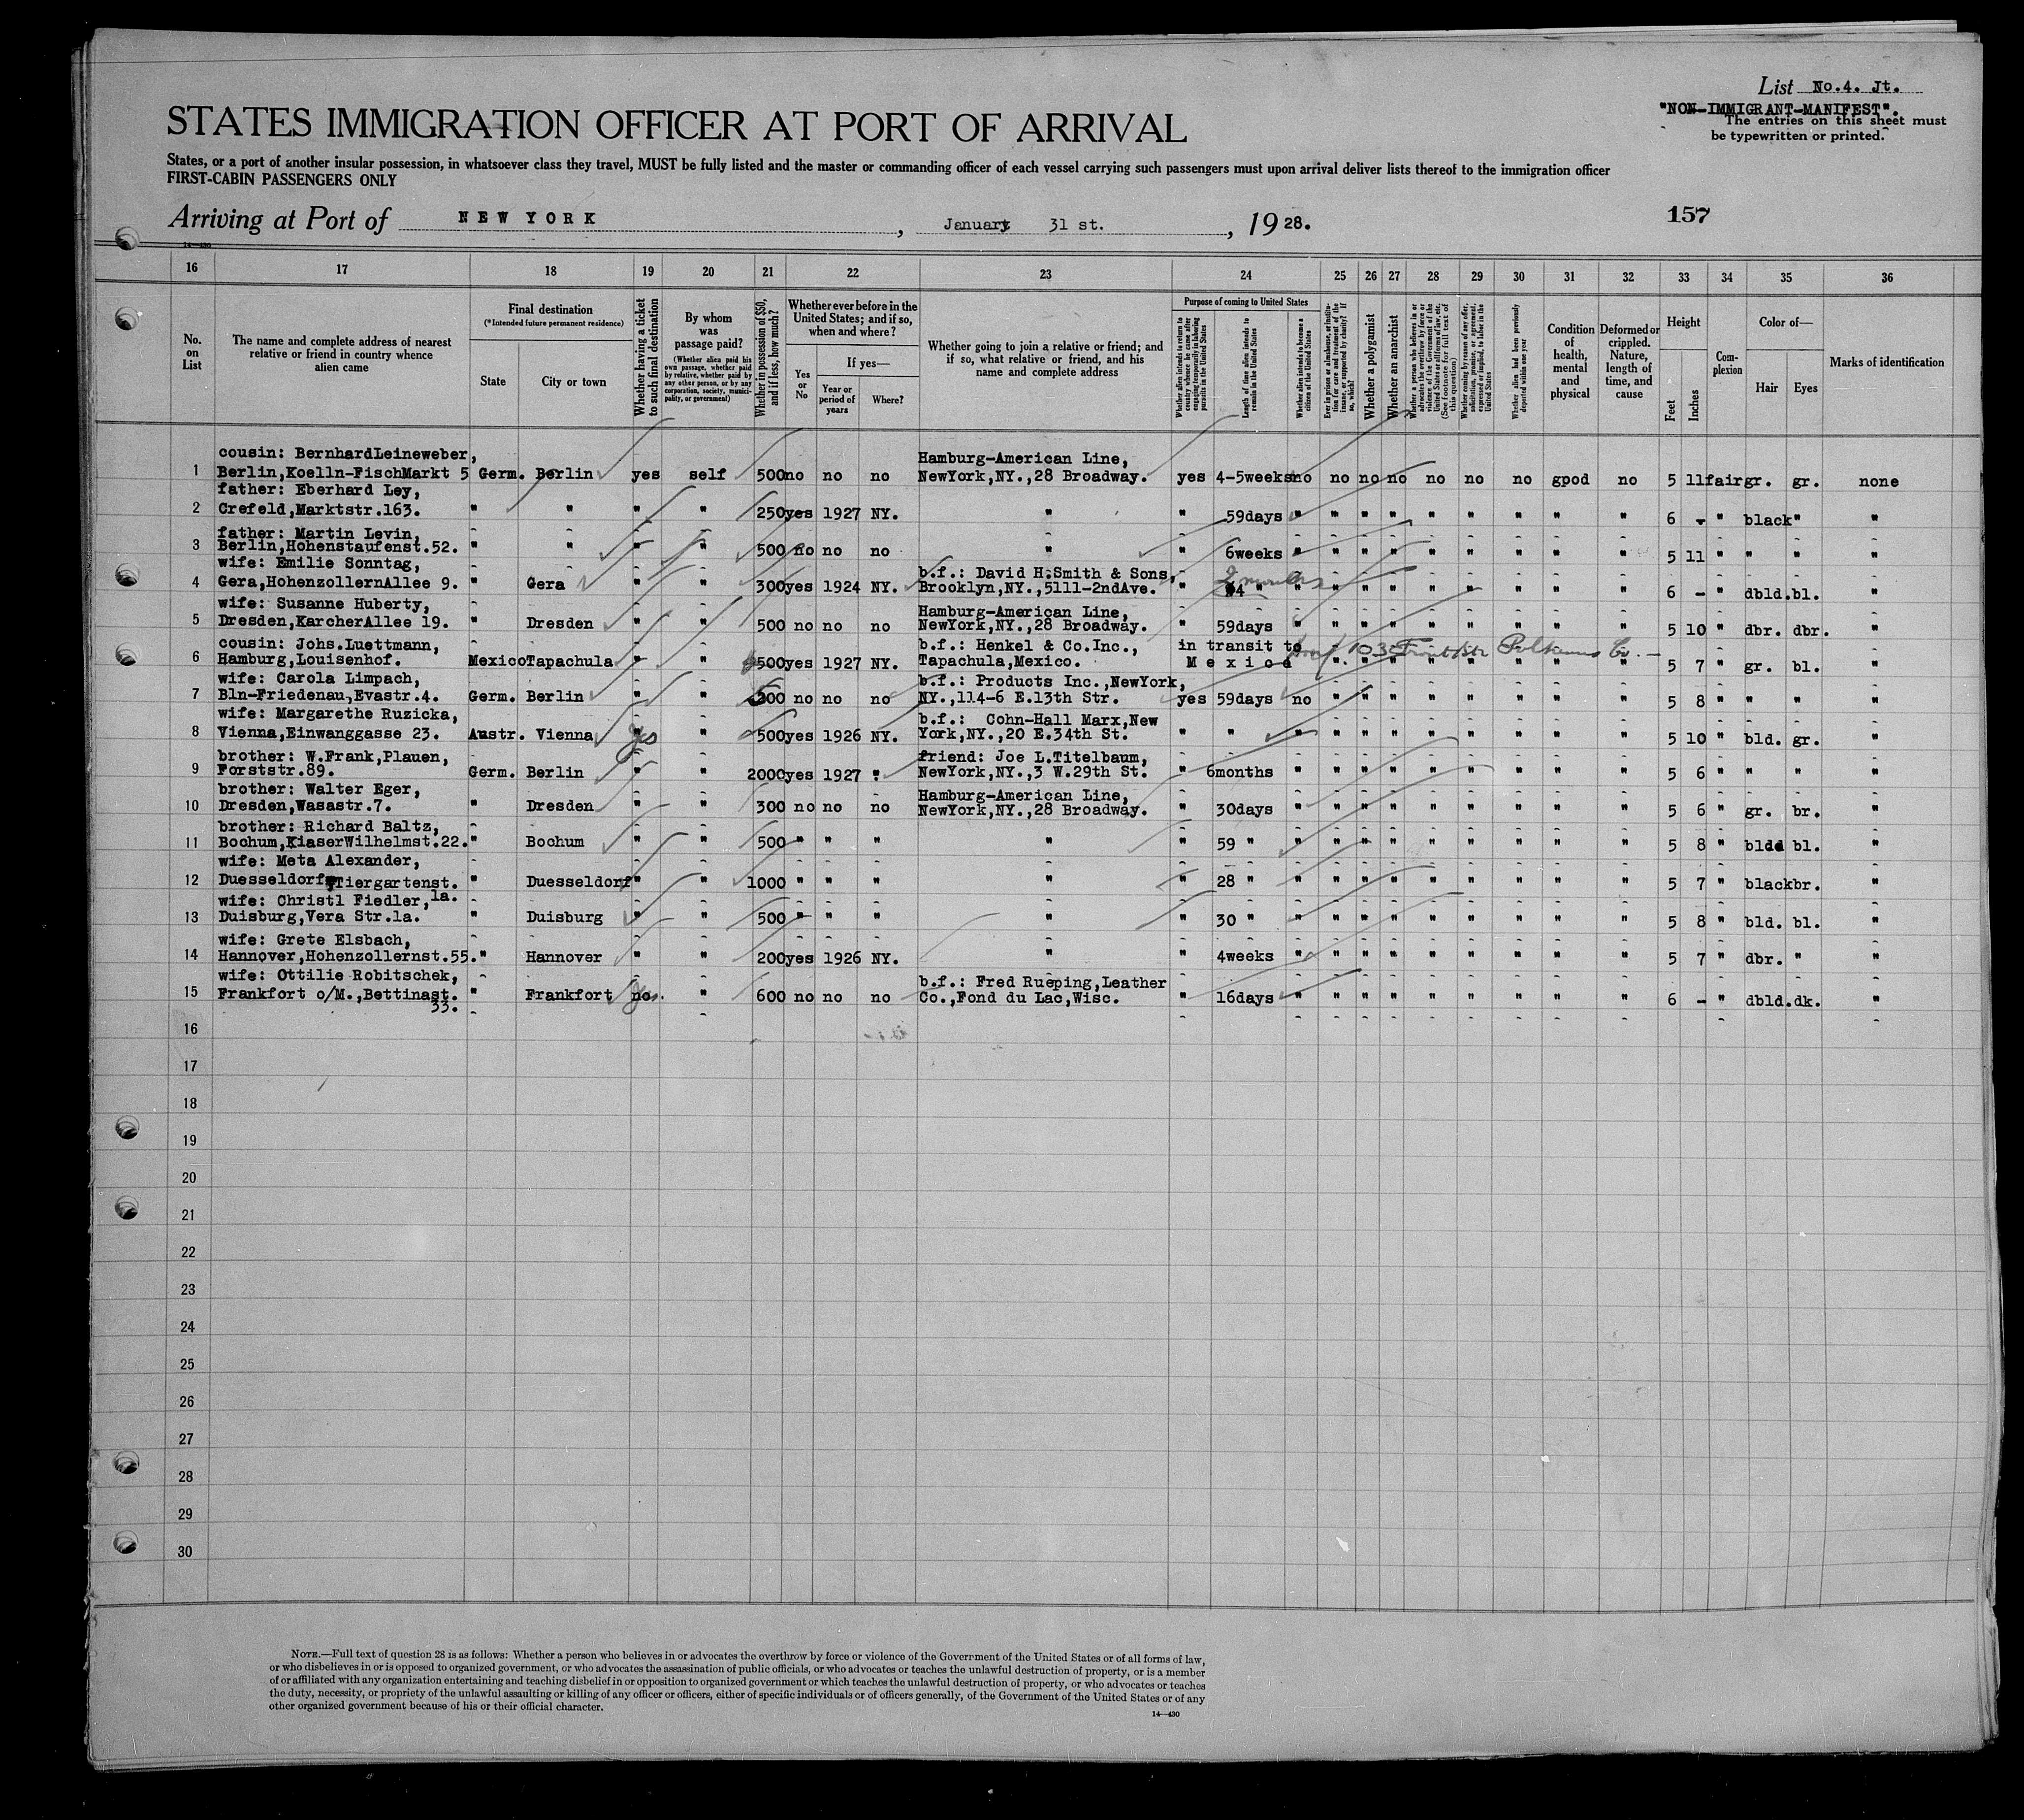 List No.4. Jt.
"NON-IMMIGRANT-MANIFEST".
The entries on this sheet must
be typewritten or printed.
STATES IMMIGRATION OFFICER AT PORT OF ARRIVAL
States, or a port of another insular possession, in whatsoever class they travel, MUST be fully listed and the master or commanding officer of each vessel carrying such passengers must upon arrival deliver lists thereof to the immigration officer
FIRST-CABIN PASSENGERS ONLY
Arriving at Port of NEW YORK, January 31 st., 1928.
157
14—430
16 17 18 19 20 21 22 23 24 25 26 27 28 29 30 31 32 33 34 35 36
No. on List
The name and complete address of nearest relative or friend in country whence alien came
Final destination
(*Intended future permanent residence)
State
City or town
Whether having a ticket to such final destination
By whom was passage paid?
(Whether alien paid his own passage, whether paid by relative, whether paid by any other person, or by any corporation, society, municipality, or government)
Whether in possession of $50, and if less, how much?
Whether ever before in the United States; and if so, when and where?
Yes or No
If yes—
Year or period of years
Where?
Whether going to join a relative or friend; and if so, what relative or friend, and his name and complete address
Purpose of coming to United States
Whether alien intends to return to country whence he came after engaging temporarily in laboring pursuits in the United States
Length of time alien intends to remain in the United States
Whether alien intends to become a citizen of the United States
Ever in prison or almshouse, or institution for care and treatment of the insane, or supported by charity? If so, which?
Whether a polygamist
Whether an anarchist
Whether a person who believes in or advocates the overthrow by force or violence of the Government of the United States or all forms of law, etc. (See footnote for full text of this question)
Whether coming by reason of any offer, solicitation, promise, or agreement, expressed or implied, to labor in the United States
Whether alien had been previously deported within one year
Condition of health, mental and physical
Deformed or crippled. Nature, length of time, and cause
Height
Feet
Inches
Complexion
Color of—
Hair
Eyes
Marks of identification
cousin: BernhardLeineweber,
Hamburg-American Line,
1 Berlin,Koelln-FischMarkt 5 Germ. Berlin yes self 500 no no no NewYork,NY.,28 Broadway. yes 4-5weeks no no no no no no no gpod no 5 11 fair gr. gr. none
father: Eberhard Ley,
2 Crefeld,Marktstr.163. " " " " 250 yes 1927 NY. " " 59days " " " " " " " " " 6 - " black " "
father: Martin Levin,
3 Berlin,Hohenstaufenst.52. " " " " 500 no no no " " 6weeks " " " " " " " " " 5 11 " " " "
wife: Emilie Sonntag,
b.f.: David H.Smith & Sons, 2 months
4 Gera,HohenzollernAllee 9. " Gera " " 300 yes 1924 NY. Brooklyn,NY.,5111-2ndAve. " 4 " " " " " " " " " " 6 - " dbld. bl. "
wife: Susanne Huberty,
Hamburg-American Line,
5 Dresden,KarcherAllee 19. " Dresden " " 500 no no no NewYork,NY.,28 Broadway. " 59days " " " " " " " " " 5 10 " dbr. dbr. "
cousin: Johs.Luettmann,
b.f.: Henkel & Co.Inc., in transit to
6 Hamburg,Louisenhof. Mexico Tapachula " " 500 yes 1927 NY. Tapachula,Mexico. Mexico " " " " " " " " 5 7 " gr. bl. "
wife: Carola Limpach,
b.f.: Products Inc.,NewYork,
7 Bln-Friedenau,Evastr.4. Germ. Berlin " " 200 no no no NY.,114-6 E.13th Str. yes 59days no " " " " " " " " 5 8 " " " "
wife: Margarethe Ruzicka,
b.f.: Cohn-Hall Marx,New
8 Vienna,Einwanggasse 23. Austr. Vienna yes " 500 yes 1926 NY. York,NY.,20 E.34th St. " " " " " " " " " " " 5 10 " bld. gr. "
brother: W.Frank,Plauen,
friend: Joe L.Titelbaum,
9 Forststr.89. Germ. Berlin " " 2000 yes 1927 " NewYork,NY.,3 W.29th St. " 6months " " " " " " " " " 5 6 " " " "
brother: Walter Eger,
Hamburg-American Line,
10 Dresden,Wasastr.7. " Dresden " " 300 no no no NewYork,NY.,28 Broadway. " 30days " " " " " " " " " 5 6 " gr. br. "
brother: Richard Baltz,
11 Bochum,KiaserWilhelmst.22. " Bochum " " 500 " " " " " 59 " " " " " " " " " " 5 8 " bld bl. "
wife: Meta Alexander,
12 Duesseldorf,Tiergartenst. " Duesseldorf " " 1000 " " " " " 28 " " " " " " " " " " 5 7 " black br. "
wife: Christl Fiedler, 1a.
13 Duisburg,Vera Str.1a. " Duisburg " " 500 " " " " " 30 " " " " " " " " " " 5 8 " bld. bl. "
wife: Grete Elsbach,
14 Hannover,Hohenzollernst.55. " Hannover " " 200 yes 1926 NY. " " 4weeks " " " " " " " " " 5 7 " dbr. " "
wife: Ottilie Robitschek,
b.f.: Fred Rueping,Leather
15 Frankfort o/M.,Bettinast. " Frankfort no yes " 600 no no no Co.,Fond du Lac,Wisc. " 16days " " " " " " " " " 6 - " dbld. dk. "
33.
16
17
18
19
20
21
22
23
24
25
26
27
28
29
30
NOTE.—Full text of question 28 is as follows: Whether a person who believes in or advocates the overthrow by force or violence of the Government of the United States or of all forms of law,
or who disbelieves in or is opposed to organized government, or who advocates the assassination of public officials, or who advocates or teaches the unlawful destruction of property, or is a member
of or affiliated with any organization entertaining and teaching disbelief in or opposition to organized government or which teaches the unlawful destruction of property, or who advocates or teaches
the duty, necessity, or propriety of the unlawful assaulting or killing of any officer or officers, either of specific individuals or of officers generally, of the Government of the United States or of any
other organized government because of his or their official character.
14—430